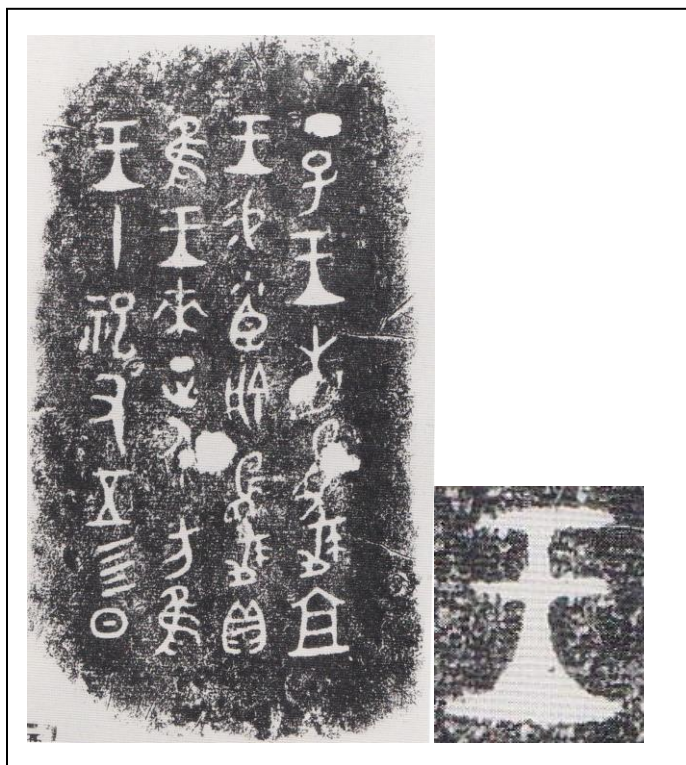 丁巳王省夔且
王易小臣艅夔貝
隹王來正人方隹
王十祀又五肜日
王